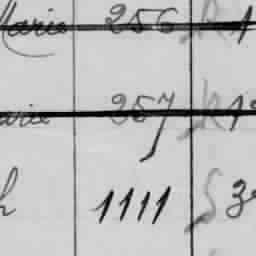 Marie 256 1
arie 257 1
h 1111 3